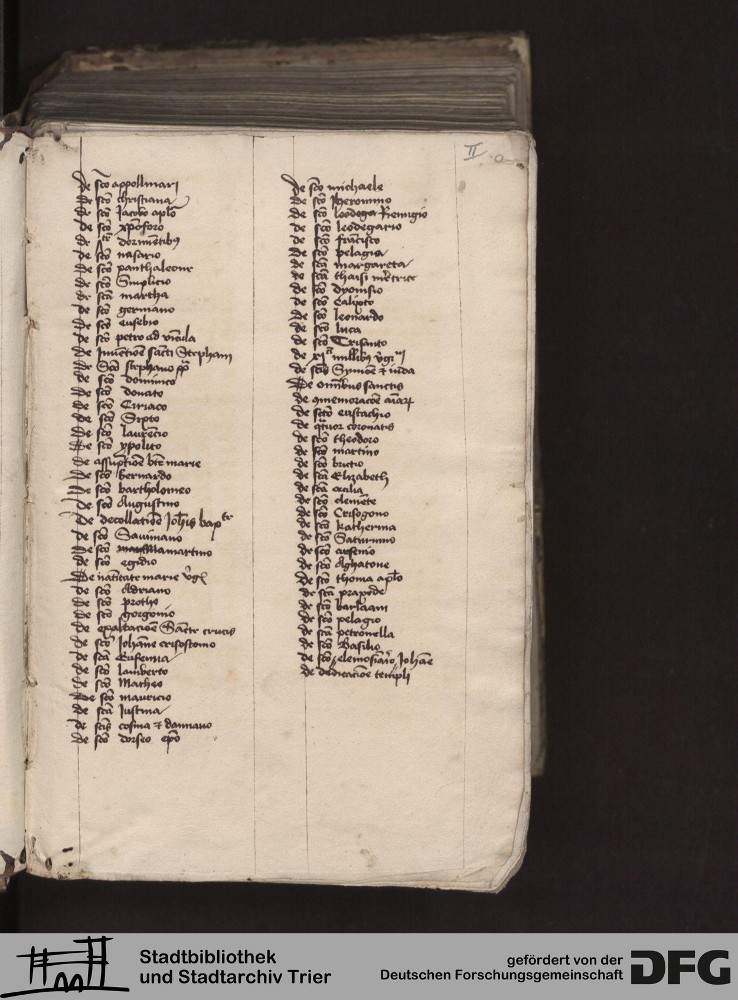 II
De sco appollinari
De sco christiana
De sco Jacobo aplo
De sco xpoforo
De dormientibus
de sco nasario
De sco panthaleone
de sco Simplicio
de sca martha
de sco germano
De sco eusebio
de sco petro ad vincula
De Inventioe sancti Stephani
De Sco stephano pp
de sco dominico
de sco donato
de sco Ciriaco
de sco Sixto
De sco laurecio
De sco ypolito
de assuptioe bte marie
De sco bernardo
De sco bartholomeo
de sco Augustino
De decollatioe Johis bap
de sco Saviniano
De sco mamartino
de sco egidio
De nativitate marie vgis
de sco Adriano
de sco protho
de sco gorgonio
de exaltacioe Sancte crucis
de sco Johanne crisostomo
de sca Eufemia
de sco lamberto
de sco Matheo
De sco mauricio
de sca Justina
de scis cosma et damiano
de sco epo
De sco michaele
de sco Iheronimo
de sco Remigio
de sco leodegario
de sco francisco
de sca pelagia
de sca margareta
de sca thaisi meretrice
de sco dyonisio
de sco Calixto
de sco leonardo
de sco luca
de sco Crisanto
de xi millibus vgi
de scis Symoe et iuda
De omibus sanctis
de comemoracoe aiar
de sco eustachio
de quatuor coronatis
de sco theodoro
de sco martino
de sco brictio
de sca Elizabeth
de sca cecilia
de sco clemete
de sco Crisogono
de sca katherina
de sco Saturnino
de sco arsenio
de sco Aghatone
de sco thoma aplo
de sco barlaam
de sco pelagio
de sca petronella
de sco Basilio
de sco elemosinario Johane
de dedicacioe templi
Stadtbibliothek
und Stadtarchiv Trier
gefördert von der
Deutschen Forschungsgemeinschaft
DFG